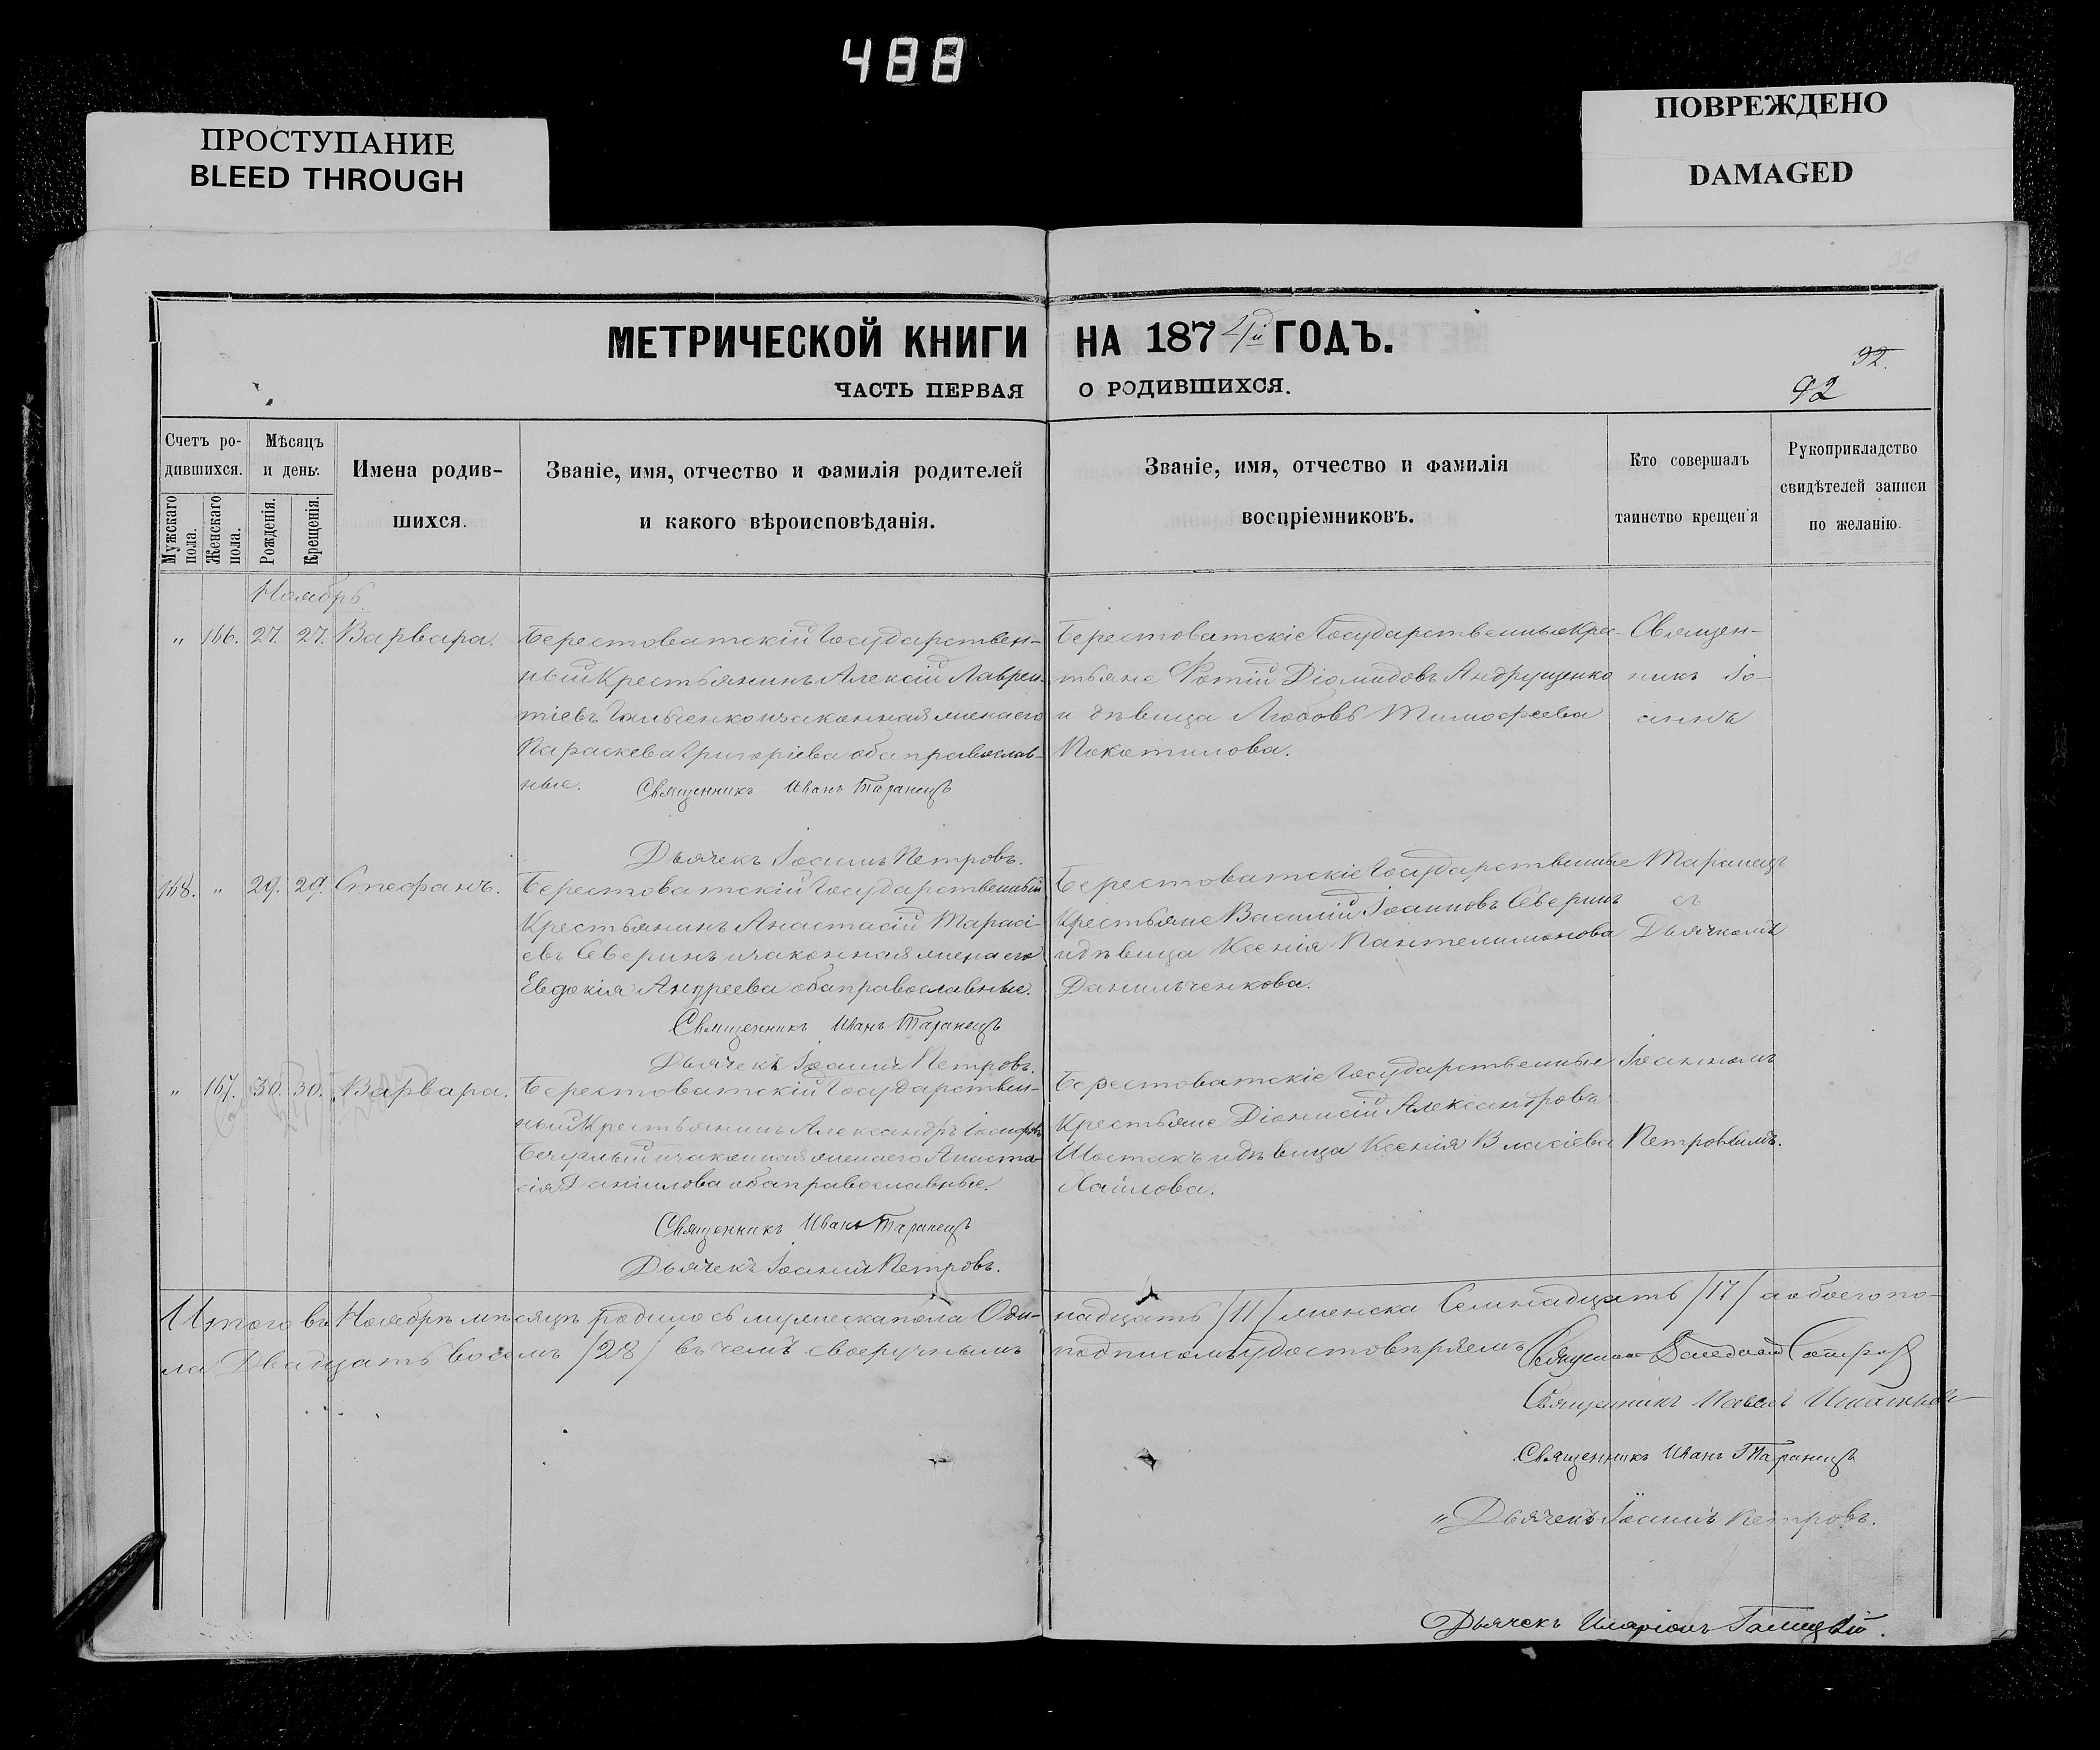 488
ПРОСТУПАНИЕ
BLEED THROUGH
ПОВРЕЖДЕНО
DAMAGED
МЕТРИЧЕСКОЙ КНИГИ НА 1874й ГОДЪ.
ЧАСТЬ ПЕРВАЯ О РОДИВШИХСЯ.
92.
92
Счетъ ро-
дившихся.
Мужскаго пола.
Женскаго пола.
Мѣсяцъ
и день.
Рожденія.
Крещенія.
Имена родив-
шихся.
Званіе, имя, отчество и фамилія родителей
и какого вѣроисповѣданія.
Званіе, имя, отчество и фамилія
воспріемниковъ.
Кто совершалъ
таинство крещенія
Рукоприкладство
свидѣтелей записи
по желанію.
Ноябрь.
„ 166. 27. 27. Варвара.
Берестоватскій Государствен-
ный Крестьянинъ Алексій Лаврен-
тіевъ и законная жена его
Параскева Григоріева оба православ-
ные. Священникъ Иванъ Таранецъ
Дьячекъ Іоаннъ Петровъ.
Берестоватскіе Государственные Крес-
тьяне Фотій Діомидовъ Андрущенко
и дѣвица Любовь Тимофеева
Покотилова.
Священ-
никъ Іо-
аннъ
168. „ 29. 29. Стефанъ.
Берестоватскій Государственный
Крестьянинъ Анастасій Тарасі-
евъ Северинъ и законная жена его
Евдокія Андреева оба православные.
Священникъ Иванъ Таранецъ
Дьячекъ Іоаннъ Петровъ.
Берестоватскіе Государственные
Крестьяне Василій Іоанновъ Северинъ
и дѣвица Ксенія Пантелимонова
Данильченкова.
Таранецъ
съ
Дьячкомъ
„ 167. 30. 30. Варвара.
Берестоватскій Государствен-
ный Крестьянинъ Александръ
и законная жена его Анаста-
сія Даніилова оба православные.
Священникъ Иванъ Таранецъ
Дьячекъ Іоаннъ Петровъ.
Берестоватскіе Государственные
Крестьяне Діонисій Александровъ
Шостакъ и дѣвица Ксенія Власіева
Хайлова.
Іоанномъ
Петровымъ.
Итого въ Ноябрѣ мѣсяцѣ родилось мужеска пола Оди-
надцать /11/ женска Семнадцать /17/ а обоего по-
ла Двадцать восемь /28/ въ чемъ своеручнымъ
подписомъ удостовѣряемъ Священникъ
Священникъ Павелъ
Священникъ Иванъ Таранецъ
„ Дьячекъ Іоаннъ Петровъ.
Дьячекъ Иларіонъ